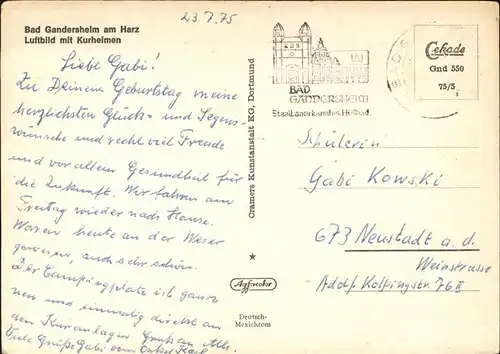 23.7.75
Bad Gandersheim am Harz
Luftbild mit Kurheimen
Liebe Gabi!
Zu Deinem Geburtstag meine
herzlichsten Glück- und Segens-
wünsche und recht viel Freude
und vor allem Gesundheit für
die Zukunft. Wir fahren am
Freitag wieder nach Hause.
Waren heute an der Weser
gewesen, auch sehr schön.
Der Campingplatz ist ganz
neu und einmalig direkt an
den Kuranlagen Gruß an Alle.
Viele Grüße Gabi vom Onkel Karl
Cramers Kunstanstalt KG, Dortmund
Agfacolor
Deutsch-
Mexichrom
BAD
GANDERSHEIM
Staatl. anerkanntes Heilbad
Cekade
Gnd 550
75/5
Schülerin
Gabi Kowski
673 Neustadt a. d.
Weinstrasse
Adolf Kolpingstr. 76 II